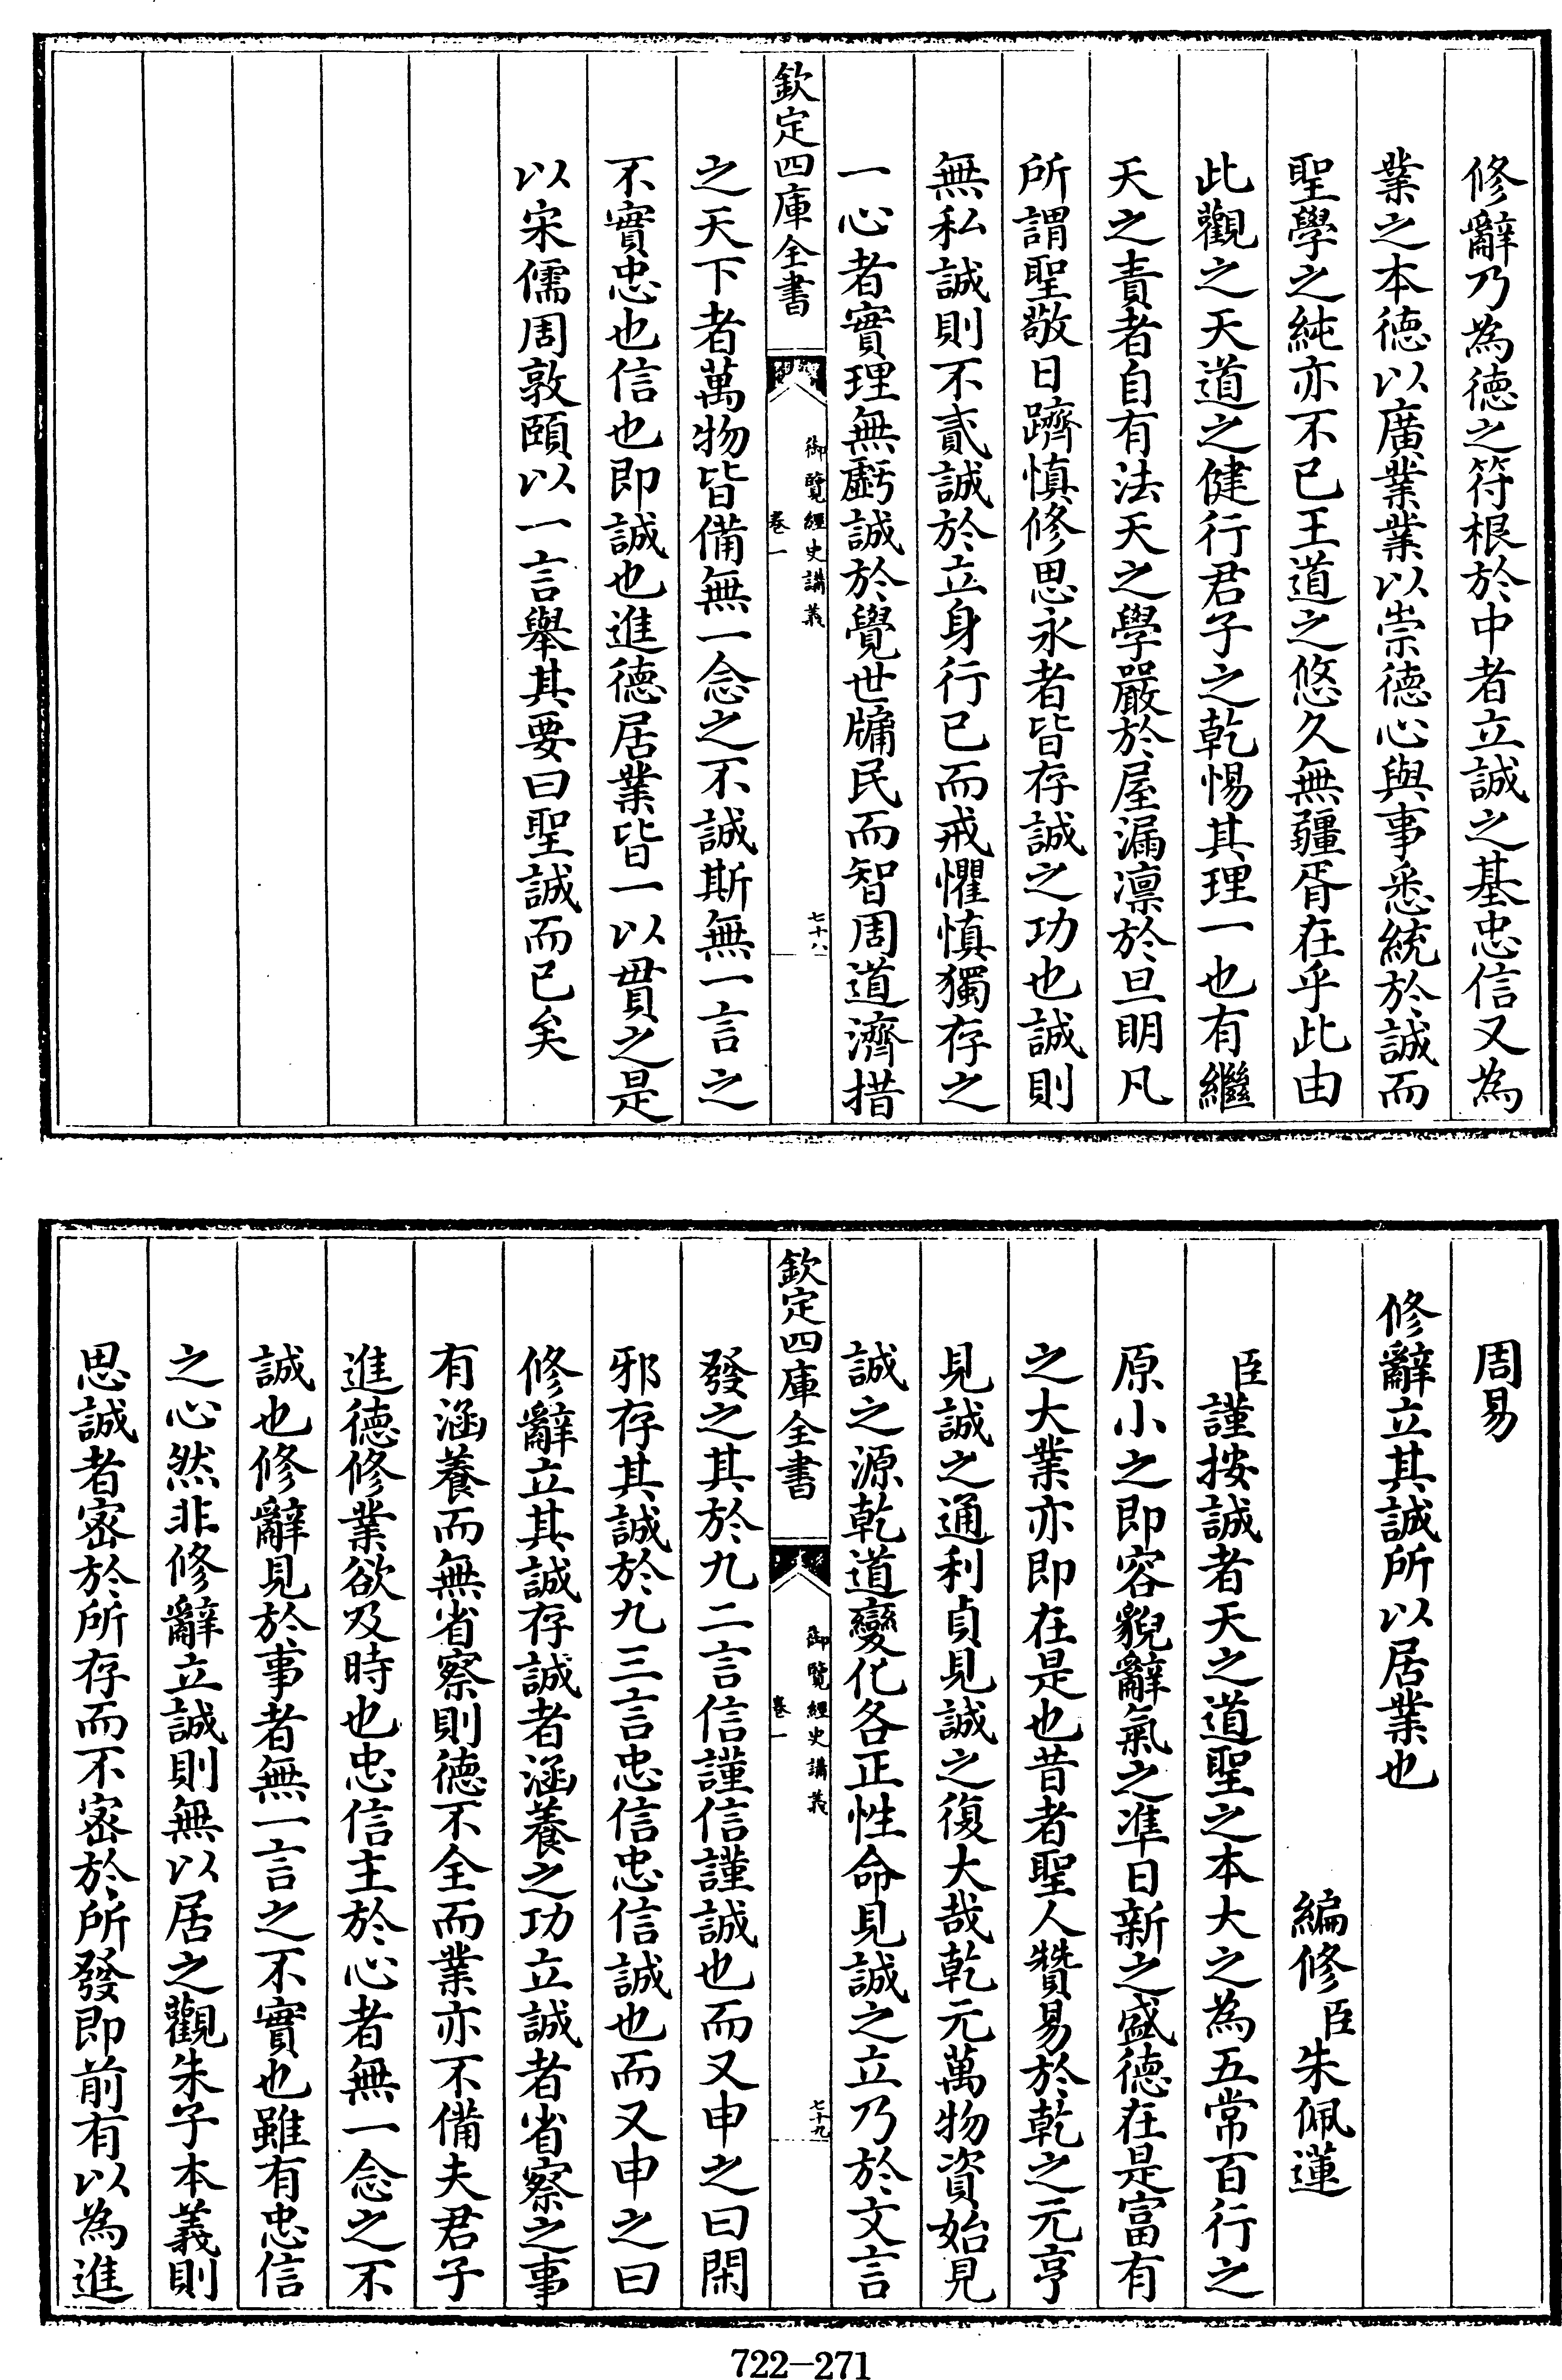 修辭乃為德之符根於中者立誠之基忠信又為
業之本德以廣業業以崇德心與事悉統於誠而
聖學之純亦不已王道之悠久無疆胥在乎此由
此觀之天道之健行君子之乾惕其理一也有繼
天之責者自有法天之學嚴於屋漏凛於旦明凡
所謂聖敬日躋慎修思永者皆存誠之功也誠則
無私誠則不貳誠於立身行已而戒懼慎獨存之
一心者實理無虧誠於覺世牖民而智周道濟措
欽定四庫全書
御覽經史講義
卷一
七十八
之天下者萬物皆備無一念之不誠斯無一言之
不實忠也信也即誠也進德居業皆一以貫之是
以宋儒周敦頤以一言舉其要曰聖誠而已矣
周易
修辭立其誠所以居業也
編修臣朱佩蓮
臣謹按誠者天之道聖之本大之為五常百行之
原小之即容貌辭氣之準日新之盛德在是富有
之大業亦即在是也昔者聖人贊易於乾之元亨
見誠之通利貞見誠之復大哉乾元萬物資始見
誠之源乾道變化各正性命見誠之立乃於文言
欽定四庫全書
御覽經史講義
卷一
七十九
發之其於九二言信謹信謹誠也而又申之曰閑
邪存其誠於九三言忠信忠信誠也而又申之曰
修辭立其誠存誠者涵養之功立誠者省察之事
有涵養而無省察則德不全而業亦不備夫君子
進德修業欲及時也忠信主於心者無一念之不
誠也修辭見於事者無一言之不實也雖有忠信
之心然非修辭立誠則無以居之觀朱子本義則
思誠者宻於所存而不宻於所發即前有以為進
722—271